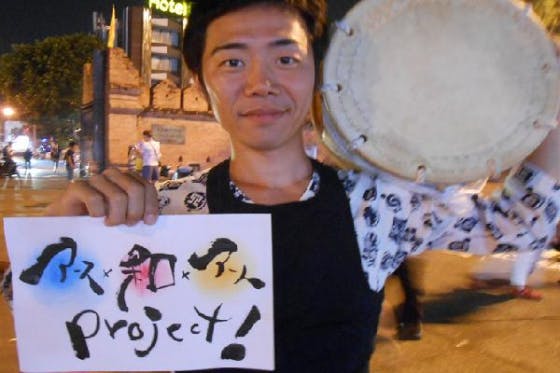 Hotel
アース×和×アート
project!